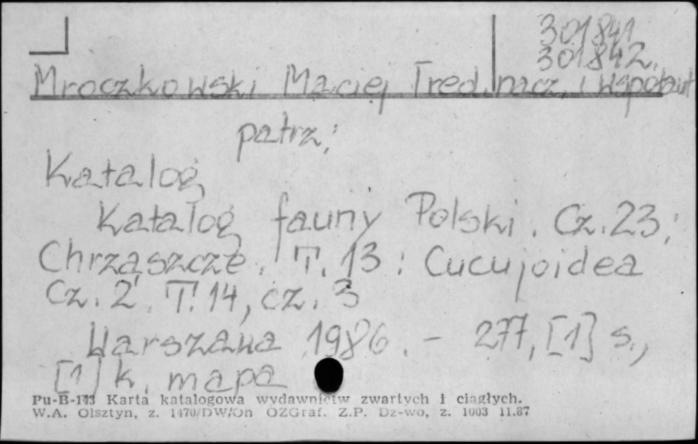 301841
301842.
Mroczkowski Maciej [red. nacz. i współaut
patrz:
Katalog
Katalog fauny Polski. Cz. 23;
Chrząszcze. T. 13: Cucujoidea
Cz. 2. T. 14, cz. 3
Warszawa 1986. - 277, [1] s.,
[1] k. mapa
Pu-B-143 Karta katalogowa wydawnictw zwartych i ciągłych.
W.A. Olsztyn, z. 1470/DW/On OZGraf. Z.P. Dz-wo, z. 1003 11.87